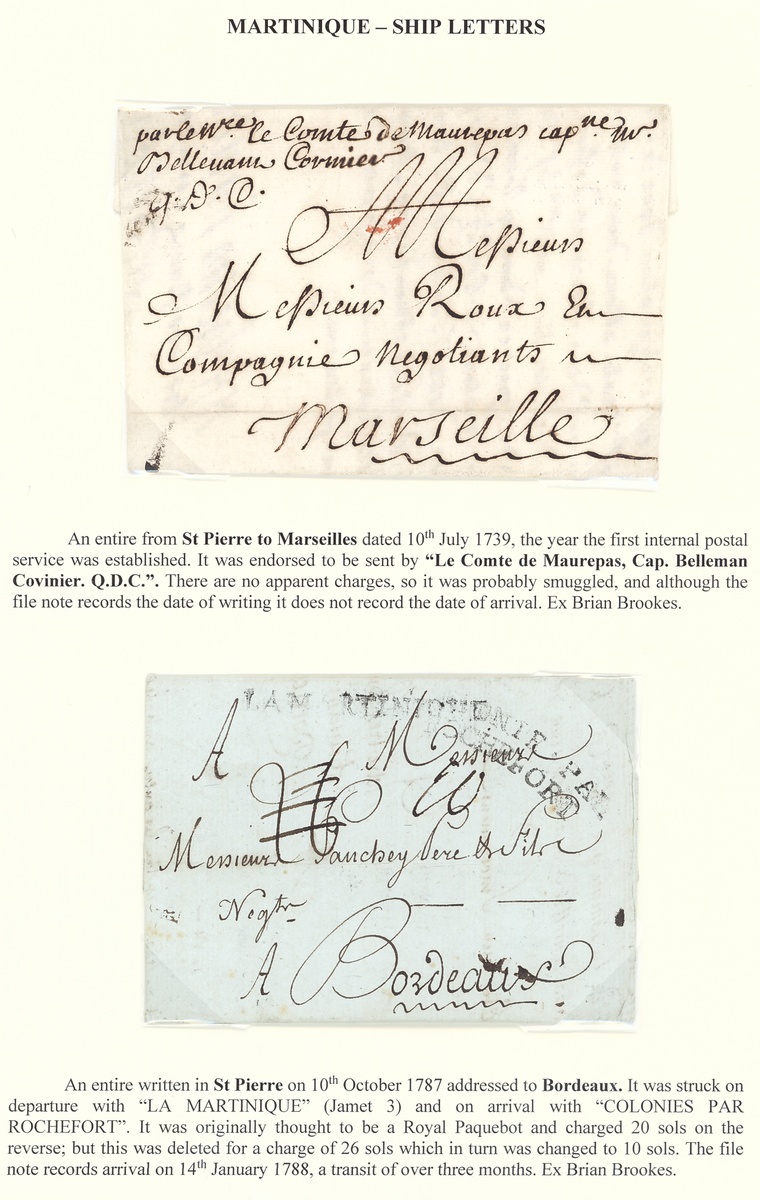 MARTINIQUE – SHIP LETTERS
le Comte de Maurepas cap^ne Mr.
Cormier
q. D. C.
Messieurs
Messieurs Roux Et
Compagnie Negotiants
Marseille
An entire from St Pierre to Marseilles dated 10th July 1739, the year the first internal postal
service was established. It was endorsed to be sent by “Le Comte de Maurepas, Cap. Belleman
Covinier. Q.D.C.”. There are no apparent charges, so it was probably smuggled, and although the
file note records the date of writing it does not record the date of arrival. Ex Brian Brookes.
LA MARTINIQUE
PAR
ROCHEFORT
A Messieurs
10
Messieurs Pere & Fils
Negts
A Bordeaux
An entire written in St Pierre on 10th October 1787 addressed to Bordeaux. It was struck on
departure with “LA MARTINIQUE” (Jamet 3) and on arrival with “COLONIES PAR
ROCHEFORT”. It was originally thought to be a Royal Paquebot and charged 20 sols on the
reverse; but this was deleted for a charge of 26 sols which in turn was changed to 10 sols. The file
note records arrival on 14th January 1788, a transit of over three months. Ex Brian Brookes.